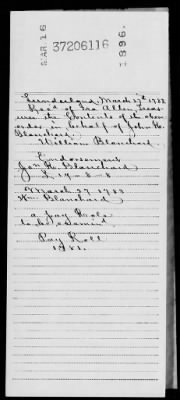 MAR 16
37206116
1896.
Sunderland, March 27th 1782
Recd of Ira Allen, treas-
urer the Contents of the above
order, in behalf of John H.
Blanchard.
William Blanchard.
Endorsement
Jon H. Blanchard
March 27 1782
Wm Blanchard
a pay Role
to be examind
Pay Roll
1781.